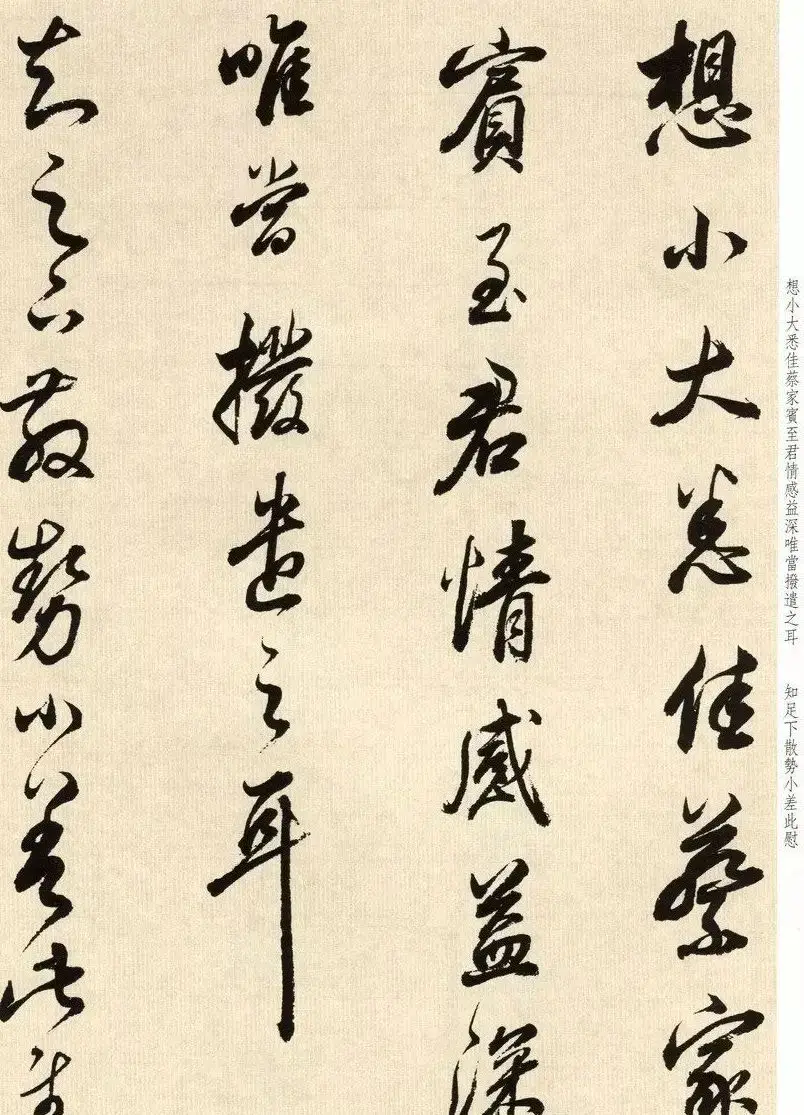 想小大悉佳蔡家賓至君情感益深唯當撥遣之耳　知足下散勢小差此慰
想小大悉佳蔡家
賓至君情感益深
唯當撥遣之耳
知足下散勢小差此慰